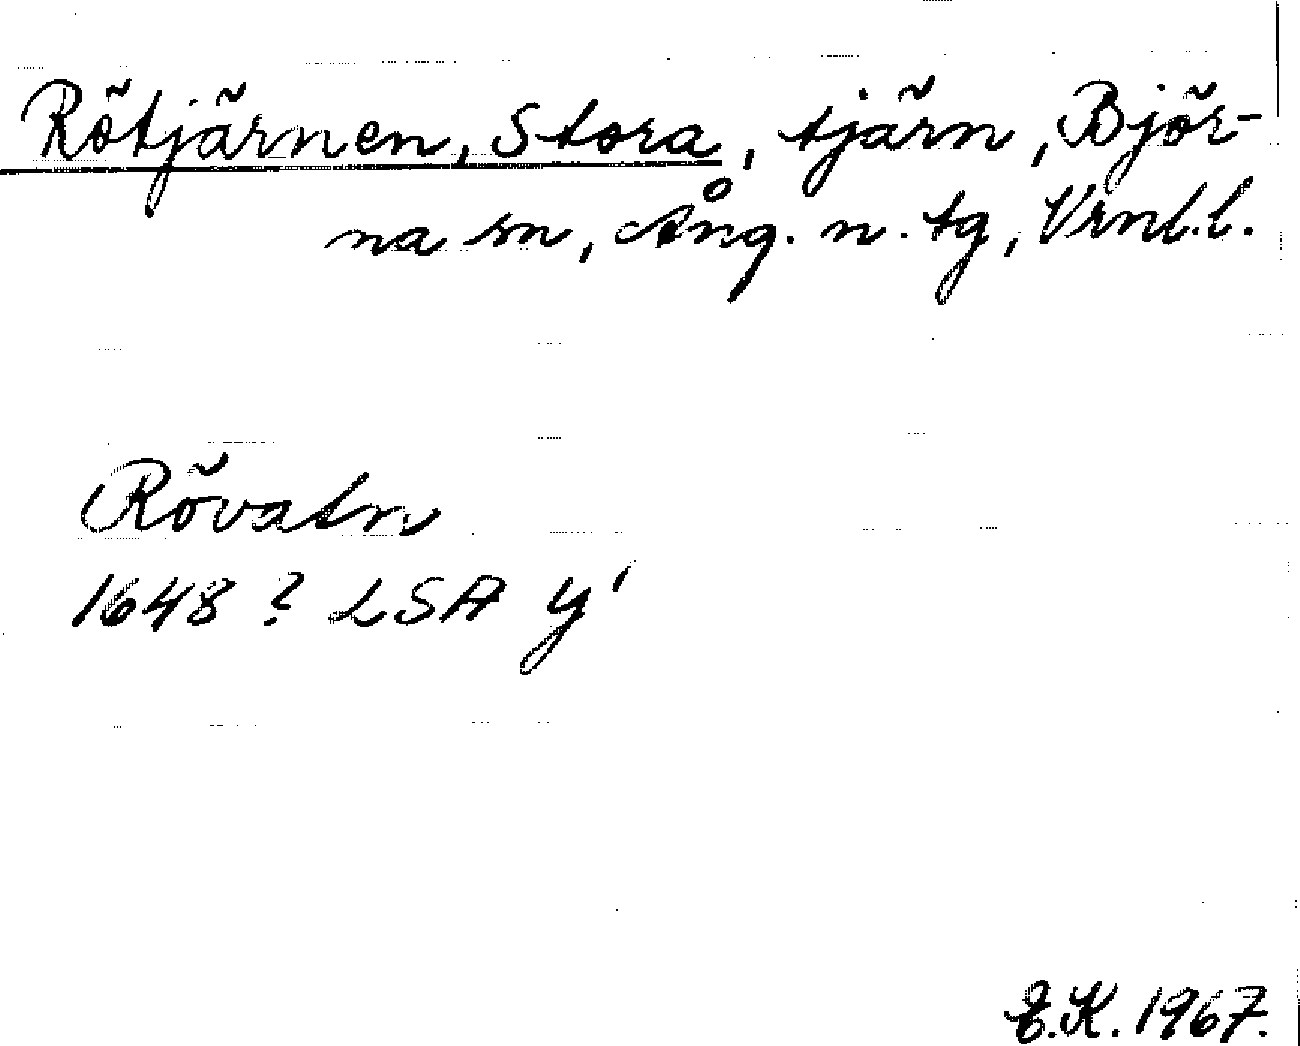 Rötjärnen, Stora, tjärn, Björ-
na sn, Ång. n. tg, Vrnl.l.
Rövatn
1648 ? LSA y¹
E.K. 1967.